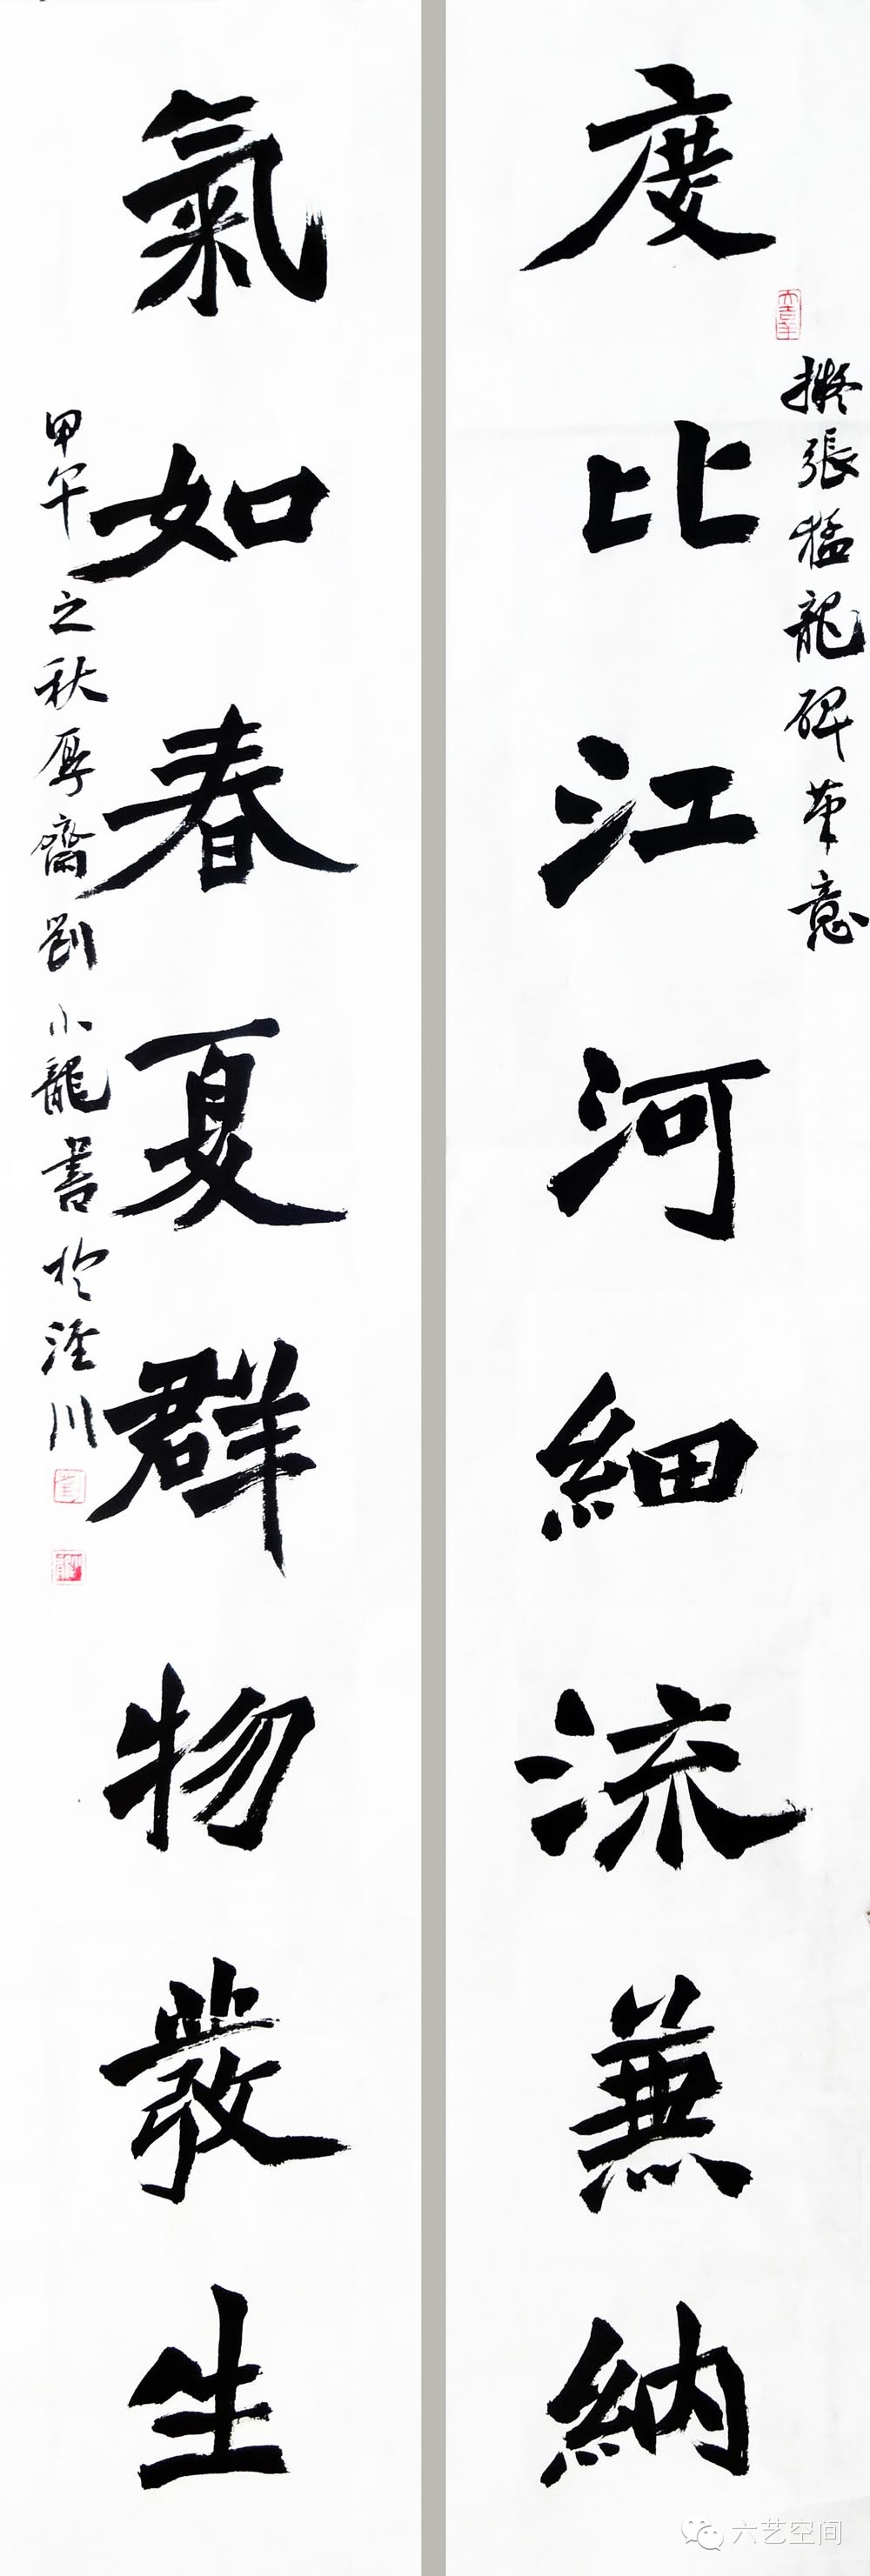 度比江河細流兼納
擬張猛龍碑筆意
氣如春夏群物發生
甲午之秋厚齋劉小龍書於涇川
六艺空间